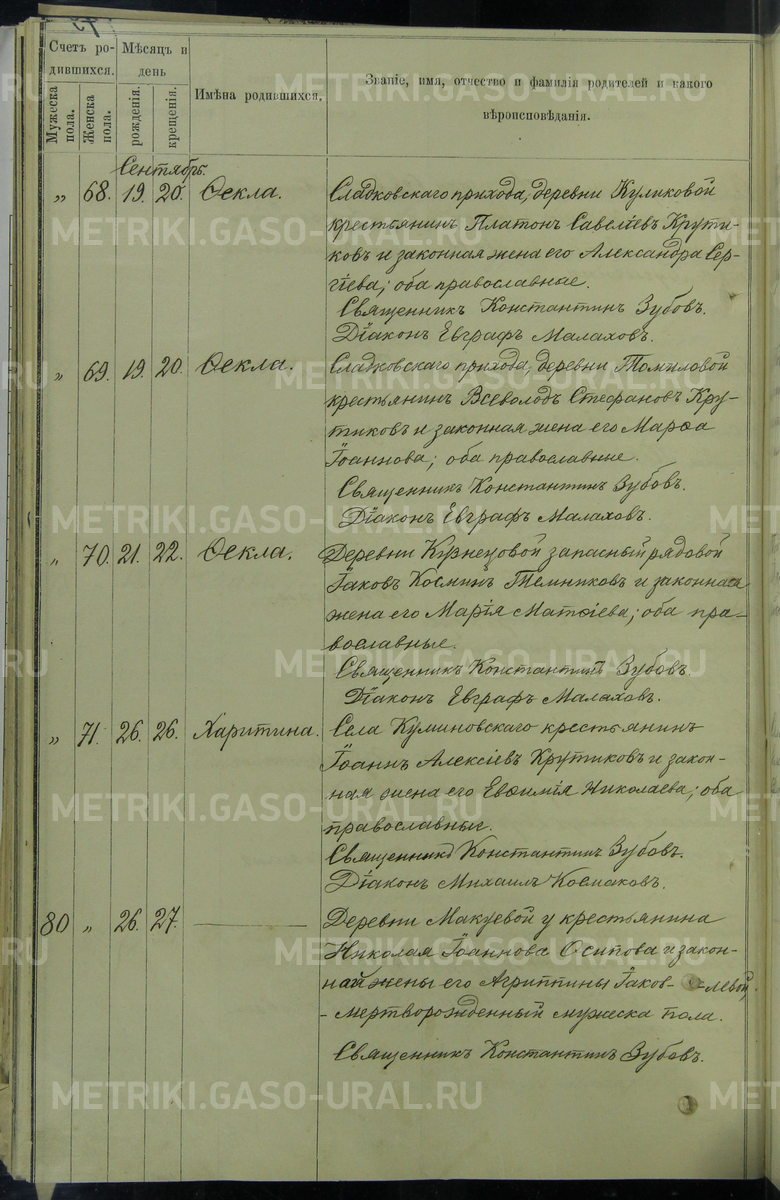 Счетъ ро-
дившихся.
Мѣсяцъ и
день
Имѣна родившихся.
Званіе, имя, отчество и фамилія родителей и какого
вѣроисповѣданія.
Мужеска пола.
Женска пола.
рожденія.
крещенія.
Сентябрь.
„ 68. 19. 20. Ѳекла. Сладковскаго прихода, деревни Куликовой
крестьянинъ Платонъ Савеліевъ Крути-
ковъ и законная жена его Александра Сер-
гіева; оба православные.
Священникъ Константинъ Зубовъ.
Діаконъ Евграфъ Малаховъ.
„ 69. 19. 20. Ѳекла. Сладковскаго прихода, деревни Томиловой
крестьянинъ Всеволодъ Стефановъ Кру-
тиковъ и законная жена его Марѳа
Іоаннова; оба православные.
Священникъ Константинъ Зубовъ.
Діаконъ Евграфъ Малаховъ.
„ 70. 21. 22. Ѳекла. Деревни Кузнецовой запасный рядовой
Іаковъ Косминъ Темниковъ и законная
жена его Марія Матѳіева; оба пра-
вославные.
Священникъ Константинъ Зубовъ.
Діаконъ Евграфъ Малаховъ.
„ 71. 26. 26. Харитина. Села Куминовскаго крестьянинъ
Іоаннъ Алексіевъ Крутиковъ и закон-
ная жена его Евѳимія Николаева; оба
православные.
Священникъ Константинъ Зубовъ.
Діаконъ Михаилъ Космаковъ.
80 „ 26. 27. Деревни Макуевой у крестьянина
Николая Іоаннова Осипова и закон-
най жены его Агриппины Іаков- -левой
- мертворожденный мужеска пола.
Священникъ Константинъ Зубовъ.
METRIKI.GASO-URAL.RU